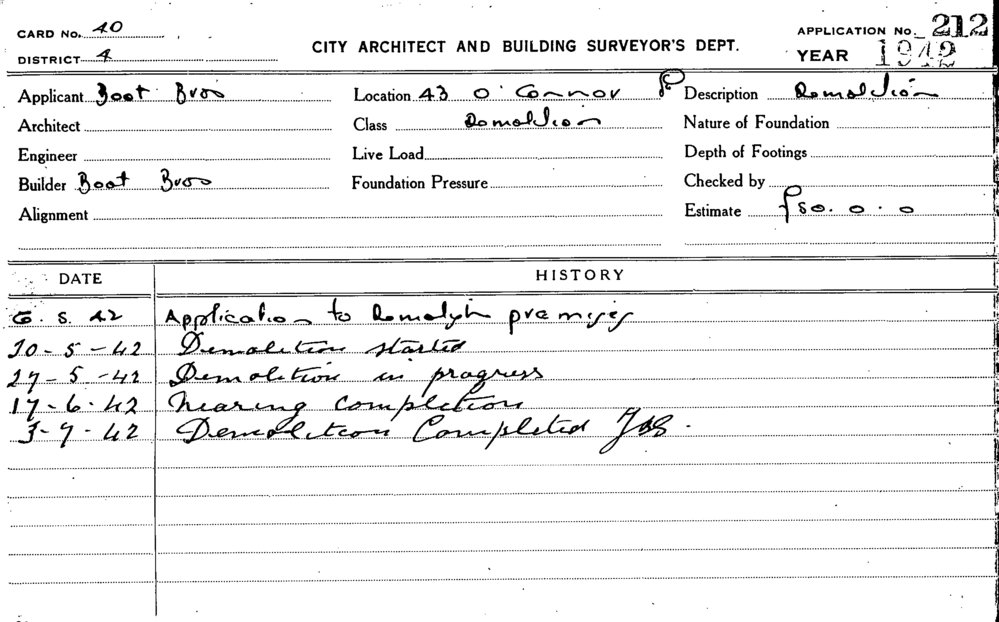 CARD No. 40
DISTRICT 4
CITY ARCHITECT AND BUILDING SURVEYOR'S DEPT.
APPLICATION No. 212
YEAR 1942
Applicant Boot Bros
Location 43 O'Connor
Description Demolition
Architect
Class Demolition
Nature of Foundation
Engineer
Live Load
Depth of Footings
Builder Boot Bros
Foundation Pressure
Checked by
Alignment
Estimate £50.0.0
DATE HISTORY
6. 5. 42 Application to Demolish premises
20-5-42 Demolition started
27-5-42 Demolition in progress
17-6-42 Nearing completion
3-7-42 Demolition Completed